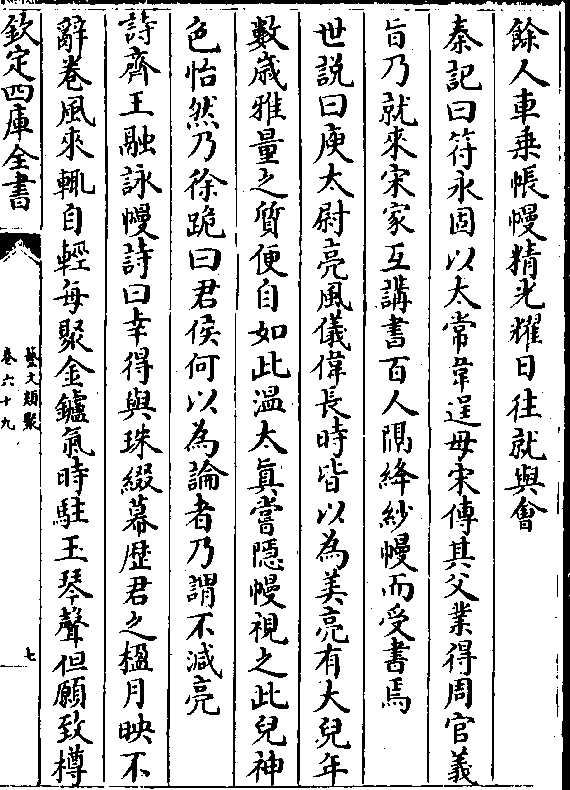 餘人車乗帳幔精光耀日往就與㑹
秦記曰符永固以太常韋逞母宋傳其父業得周官義
旨乃就來宋家互講書百人隔絳紗幔而受書焉
世説曰庾太尉亮風儀偉長時皆以為美亮有大兒年
數歳雅量之質便自如此溫太真嘗隱幔視之此兒神
色怡然乃徐跪曰君侯何以為論者乃謂不減亮
詩齊王融詠幔詩曰幸得與珠綴幕歴君之楹月映不
辭卷風來輒自輕每聚金鑪氣時駐玉琴聲但願致樽
欽定四庫全書
藝文類聚
卷六十九
七